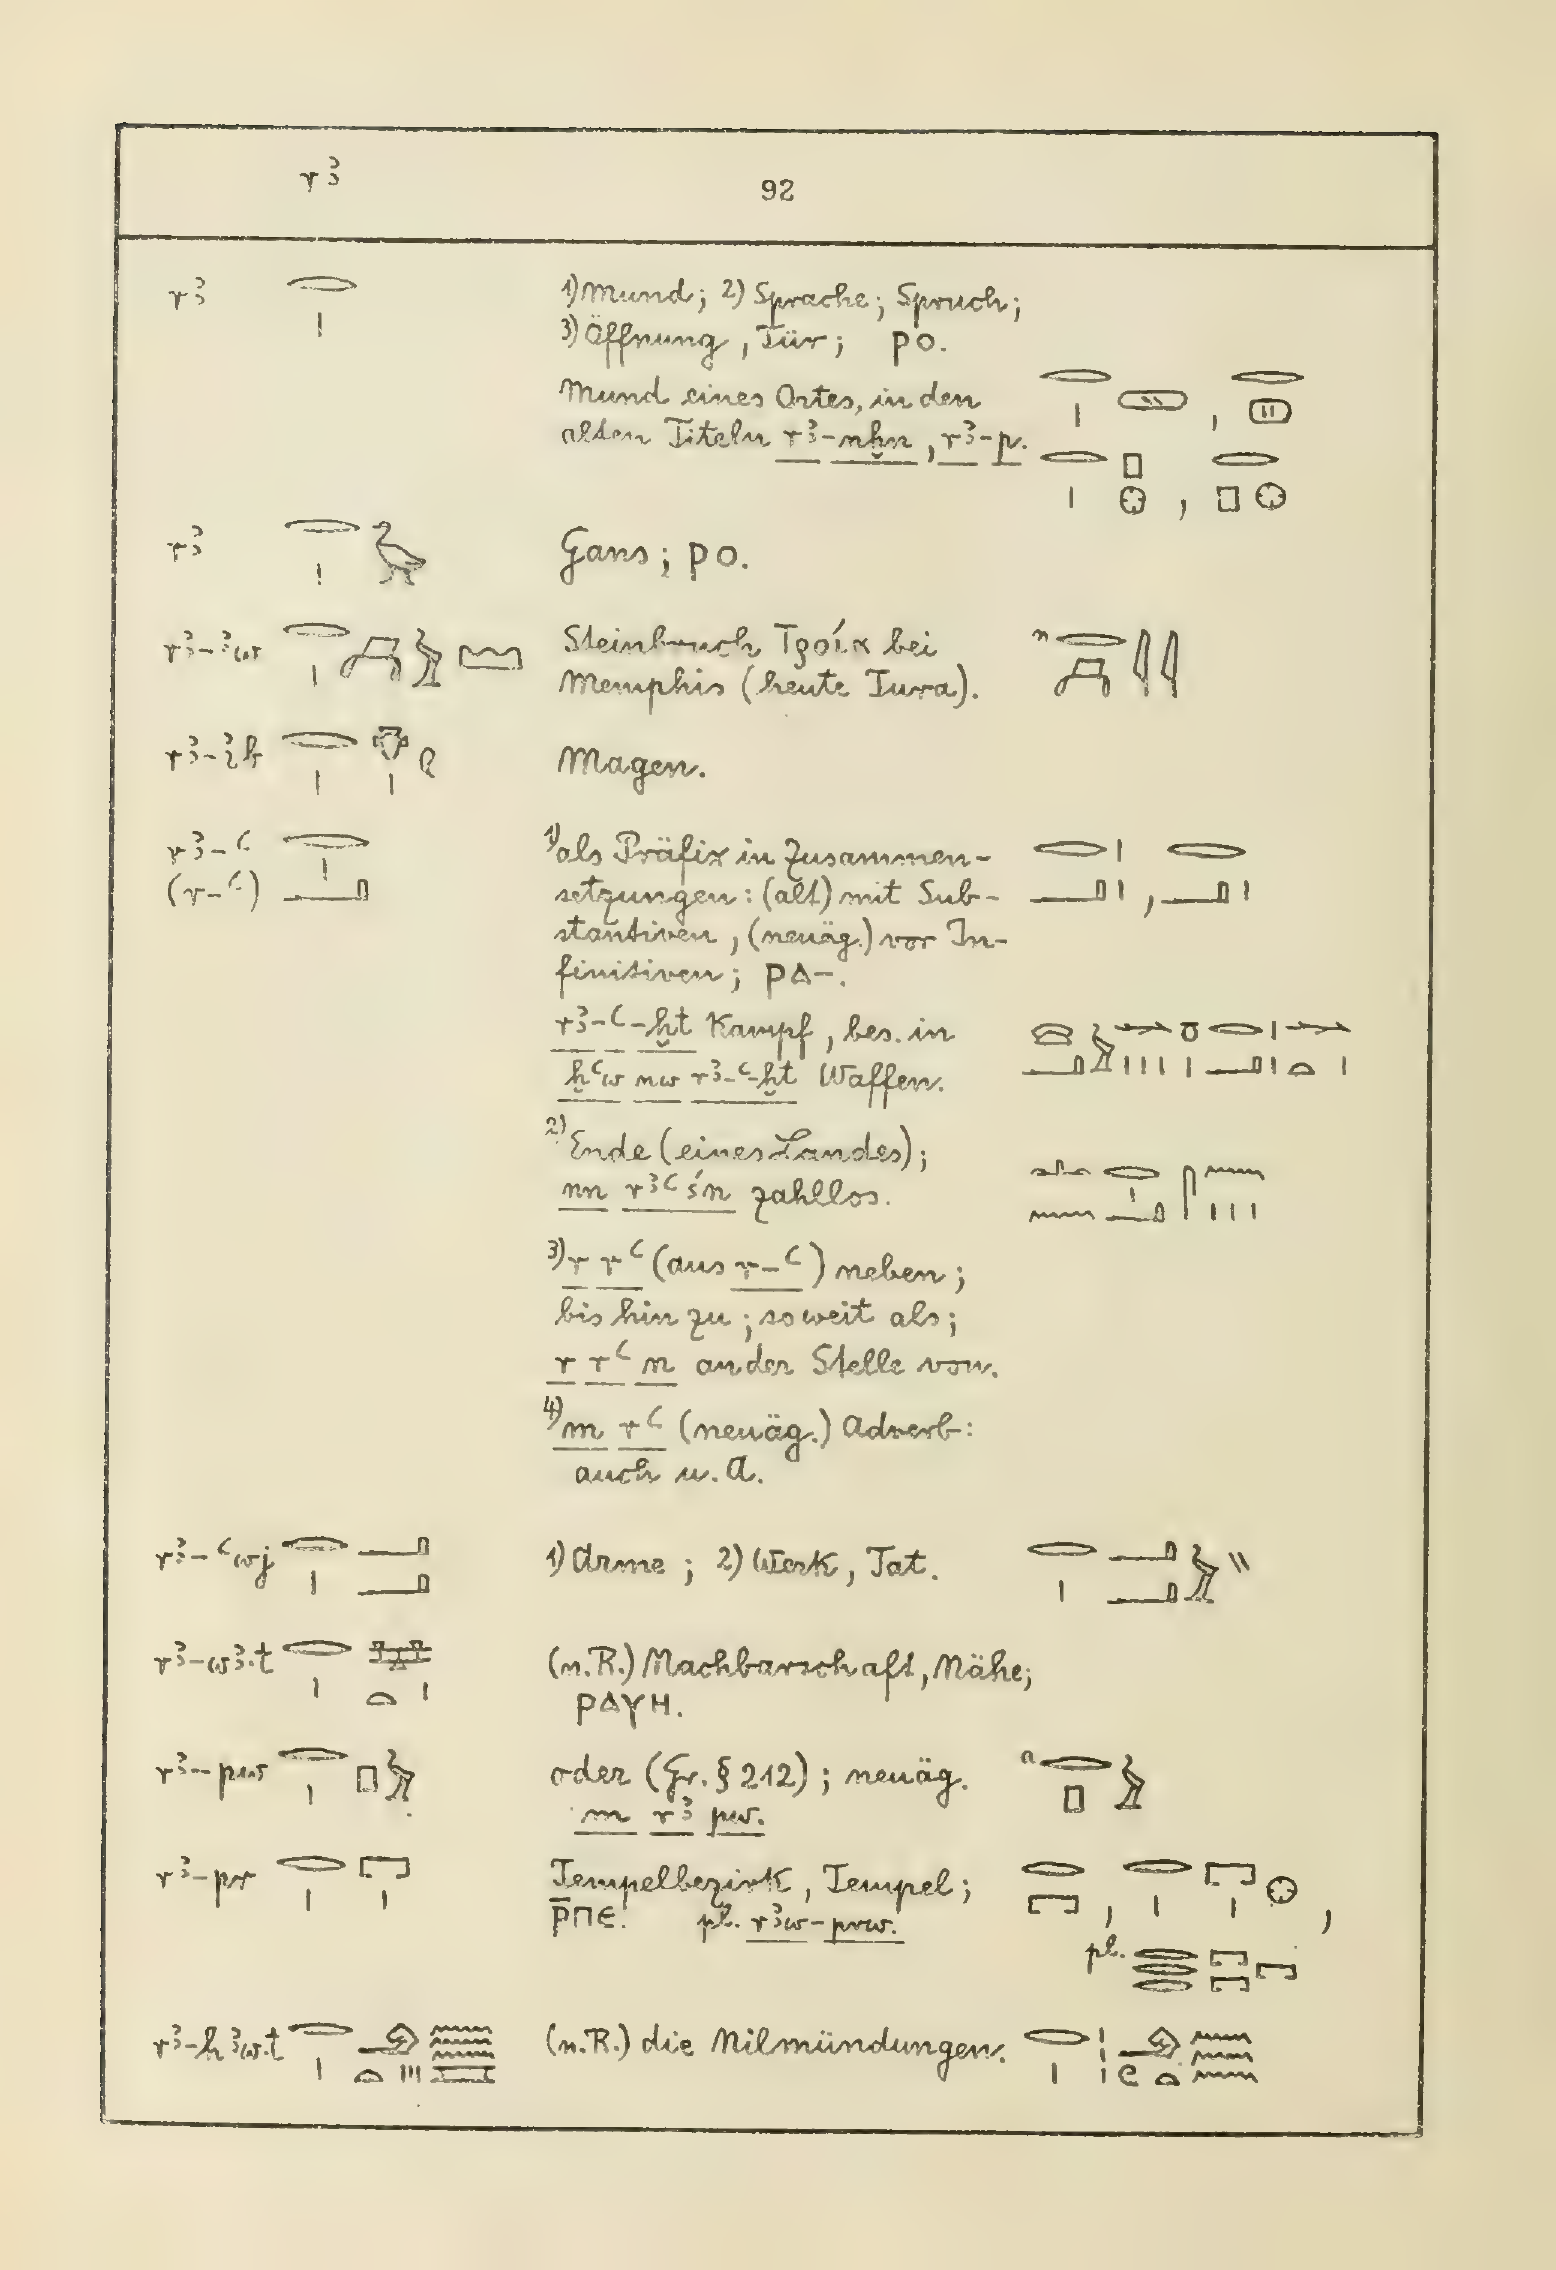 rꜣ
92
rꜣ 𓂋𓏤 1) Mund; 2) Sprache; Spruch;
3) Öffnung, Tür; ⲣⲟ.
Mund eines Ortes, in den
alten Titeln rꜣ-nḫn, rꜣ-p.
rꜣ 𓂋𓏤𓅬 Gans; ⲣⲟ.
rꜣ-ꜣw Steinbruch Τροία bei
Memphis (heute Tura).
rꜣ-ꜣb Magen.
rꜣ-ꜥ 𓂋𓏤𓂝 1) als Präfix in Zusammen-
(r-ꜥ) setzungen: (alt) mit Sub-
stantiven, (neuäg.) vor In-
finitiven; ⲣⲁ-.
rꜣ-ꜥ-ḫt Kampf, bes. in
ḫꜥw nw rꜣ-ꜥ-ḫt Waffen.
2) Ende (eines Landes);
nn rꜣꜥ śn zahllos.
3) r rꜥ (aus r-ꜥ) neben;
bis hin zu; soweit als;
r rꜥ n an der Stelle von.
4) m rꜥ (neuäg.) Adverb:
auch u. A.
rꜣ-ꜥwj 𓂋𓏤𓂝𓂝 1) Arme; 2) Werk, Tat. 𓂋𓏤𓂝𓂝𓅱𓏭
rꜣ-wꜣ.t 𓂋𓏤𓈐𓏏𓏤 (n.R.) Nachbarschaft, Nähe;
ⲣⲁⲩⲏ.
rꜣ-pw 𓂋𓏤𓊪𓅱 oder (Gr. § 212); neuäg. a 𓂋𓊪𓅱
m rꜣ pw.
rꜣ-pr 𓂋𓏤𓉐𓏤 Tempelbezirk, Tempel; 𓂋𓉐, 𓂋𓏤𓉐𓏤𓊖,
ⲣ̅ⲡⲉ. pl. rꜣw-prw. pl. 𓂋𓂋𓂋𓉐𓉐𓉐
rꜣ-hꜣw.t (n.R.) die Nilmündungen.